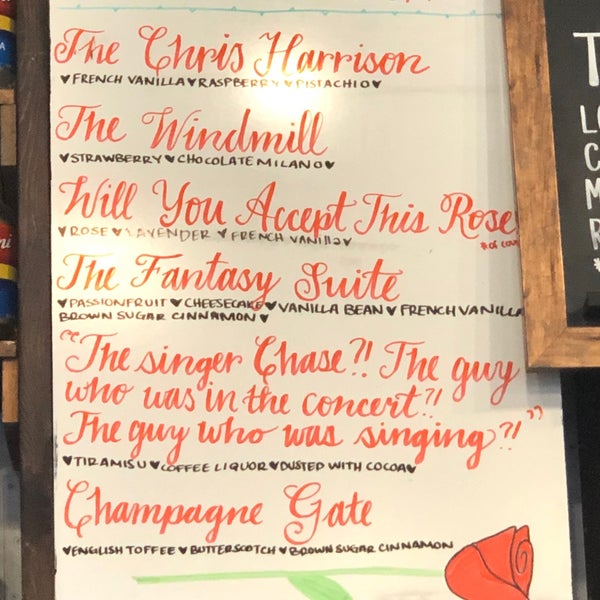 The Chris Harrison
♥FRENCH VANILLA♥RASPBERRY♥PISTACHIO♥
The Windmill
♥STRAWBERRY♥CHOCOLATE MILANO♥
Will You Accept This Rose
♥ROSE♥LAVENDER♥FRENCH VANILLA♥
The Fantasy Suite
♥PASSIONFRUIT♥CHEESECAKE♥VANILLA BEAN♥FRENCH VANILLA
BROWN SUGAR CINNAMON♥
"The singer Chase?! The guy
who was in the concert?!
The guy who was singing?!"
♥TIRAMISU♥COFFEE LIQUOR♥DUSTED WITH COCOA♥
Champagne Gate
♥ENGLISH TOFFEE♥BUTTERSCOTCH♥BROWN SUGAR CINNAMON